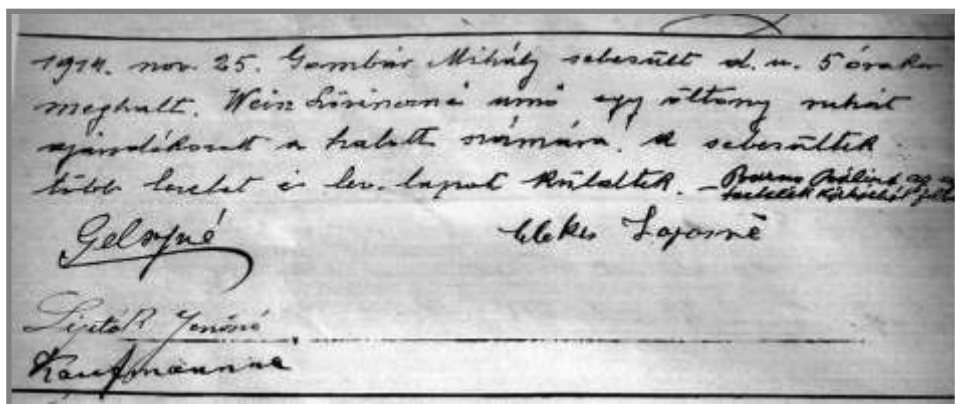 1914. nov. 25. Gombár Mihály sebesült d. u. 5 órakor
meghalt. Weisz Lőrinczné úrnő egy öltöny ruhát
ajándékozott a halott számára. A sebesültek
több levelet és lev. lapot küldtek. — Barna Bálint
Gelsyné Elekes Lajosné
Lipták Jenőné
Kaufmannné